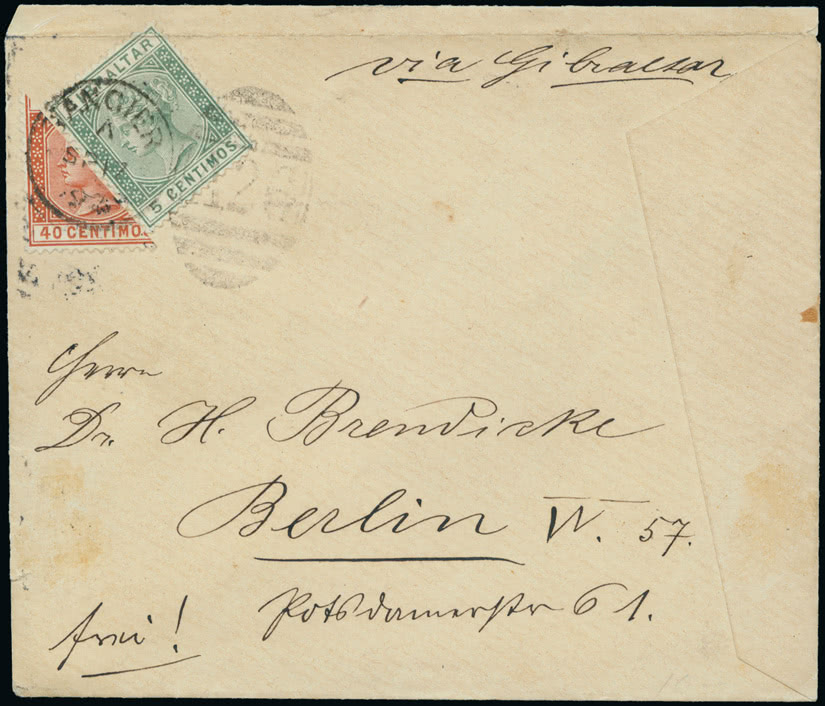 via Gibraltar
GIBRALTAR
5 CENTIMOS
40 CENTIMOS
TANGIER
SP
Herrn
Dr. H. Brendicke
Berlin W. 57.
Potsdamerstr 61.
frei!